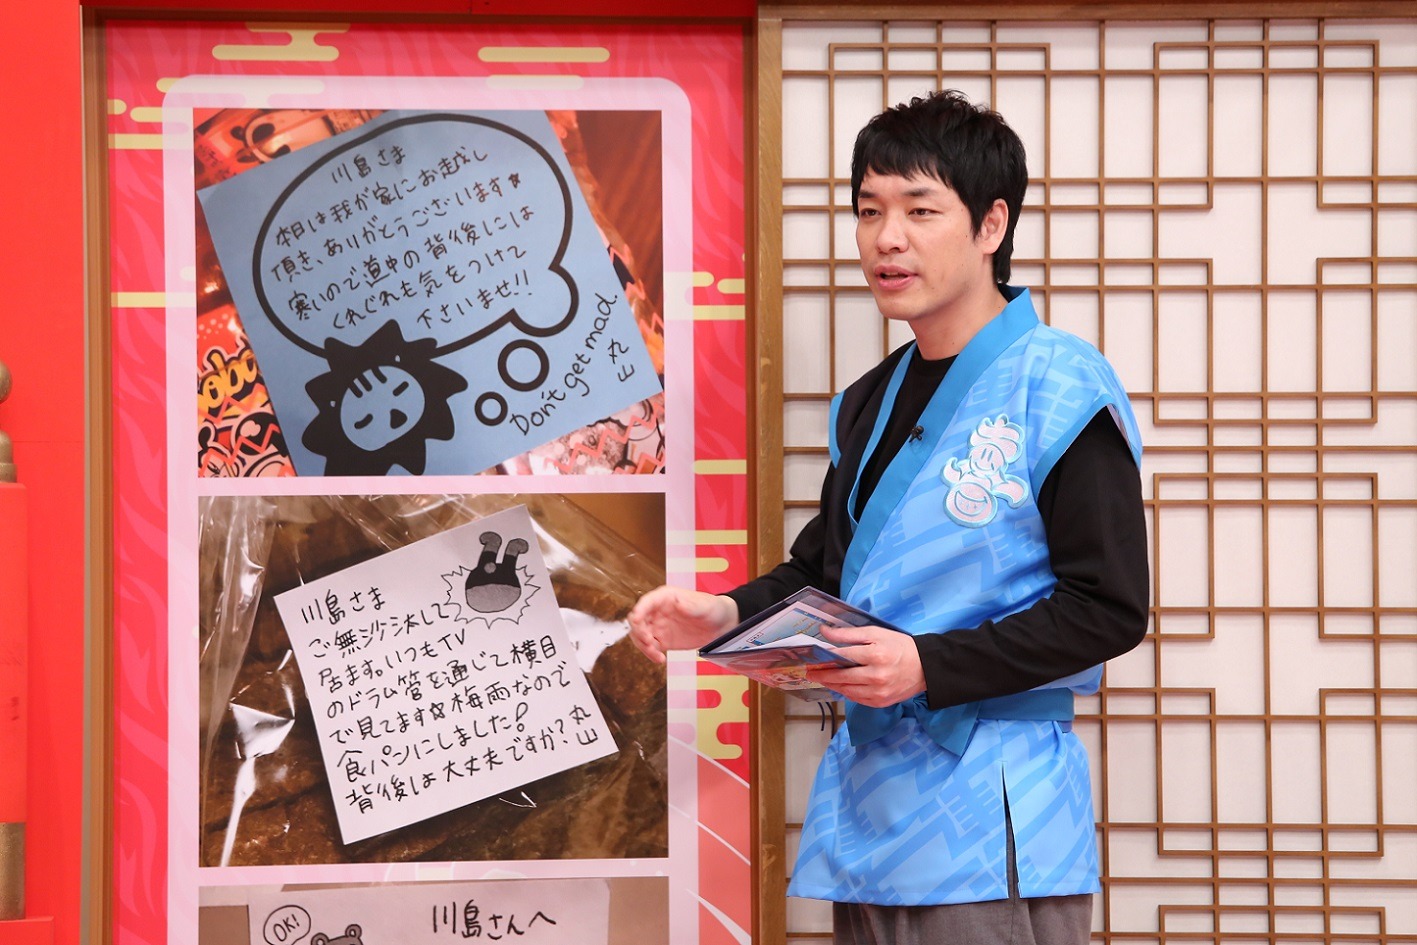 川島さま
本日は我が家にお越し
頂き、ありがとうございます☆
寒いので道中の背後には
くれぐれも気をつけて
下さいませ!!
Don't get mad.
丸山
川島さま
ご無沙汰して
居ます。いつもTV
のドラム管を通じて横目
で見てます☆梅雨なので
食パンにしました!
背後は大丈夫ですか?丸山
OK!
川島さんへ